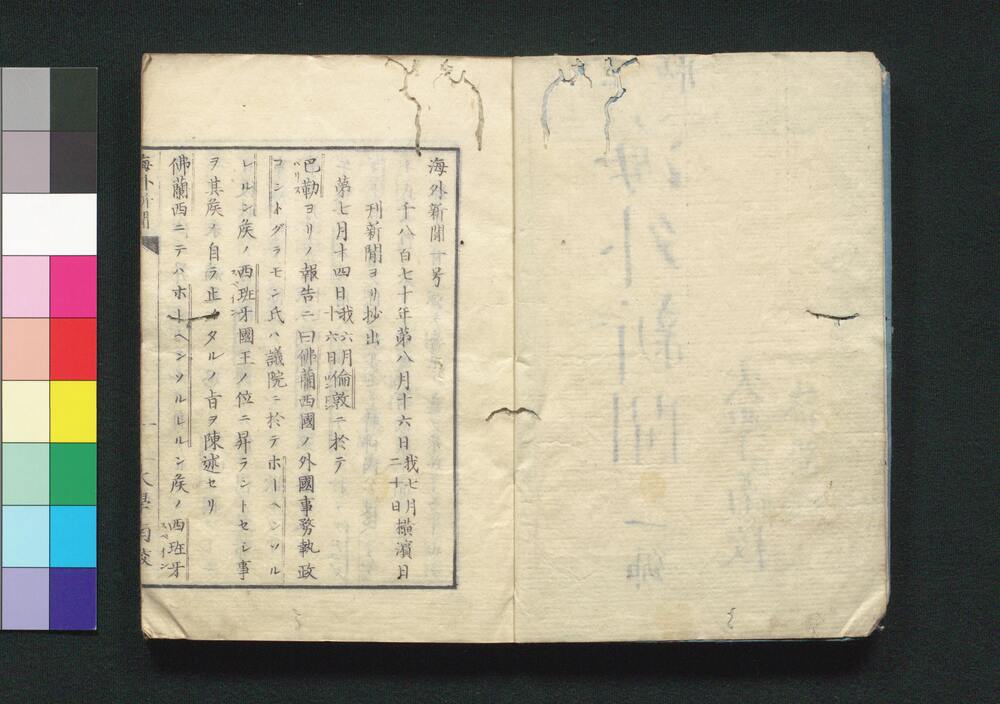 海外新聞一号
千八百七十年第八月十六日我七月二十日横濱日
刊新聞ヨリ抄出
第七月十四日我六月十六日倫敦ニ於テ
巴勒ヨリノ報告ニ曰佛蘭西國ノ外國事務執政
パリス
コントグラモン氏ハ議院ニ於テホーヘンソル
レルン矦ノ西班牙國王ノ位ニ昇ラントセシ事
スペイン
ヲ其矦ハ自ラ止メタルノ旨ヲ陳述セリ
佛蘭西ニテハホーヘンソルレルン矦ノ西班牙
スペイン
海外新聞
一
大學南校